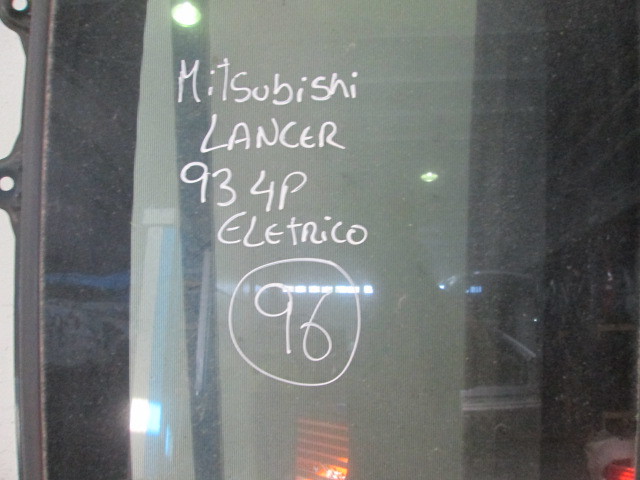 Mitsubishi
LANCER
93 4P
ELEtRICO
96